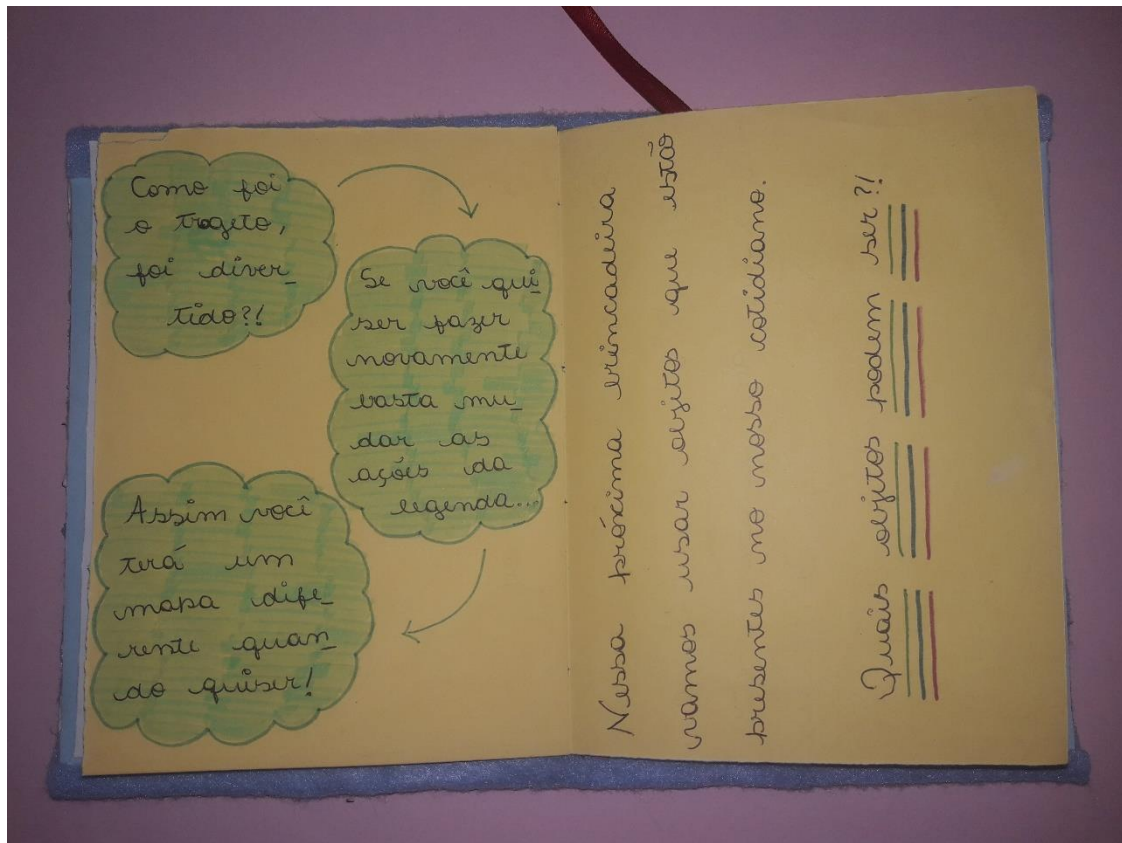 Como foi
o trageto,
foi diver_
tido?!
Se você qui_
ser fazer
novamente
basta mu_
dar as
ações da
legenda...
Assim você
terá um
mapa dife_
rente quan_
do quiser!
Nessa próxima brincadeira
vamos usar objetos que estão
presentes no nosso cotidiano.
Quais objetos podem ser?!